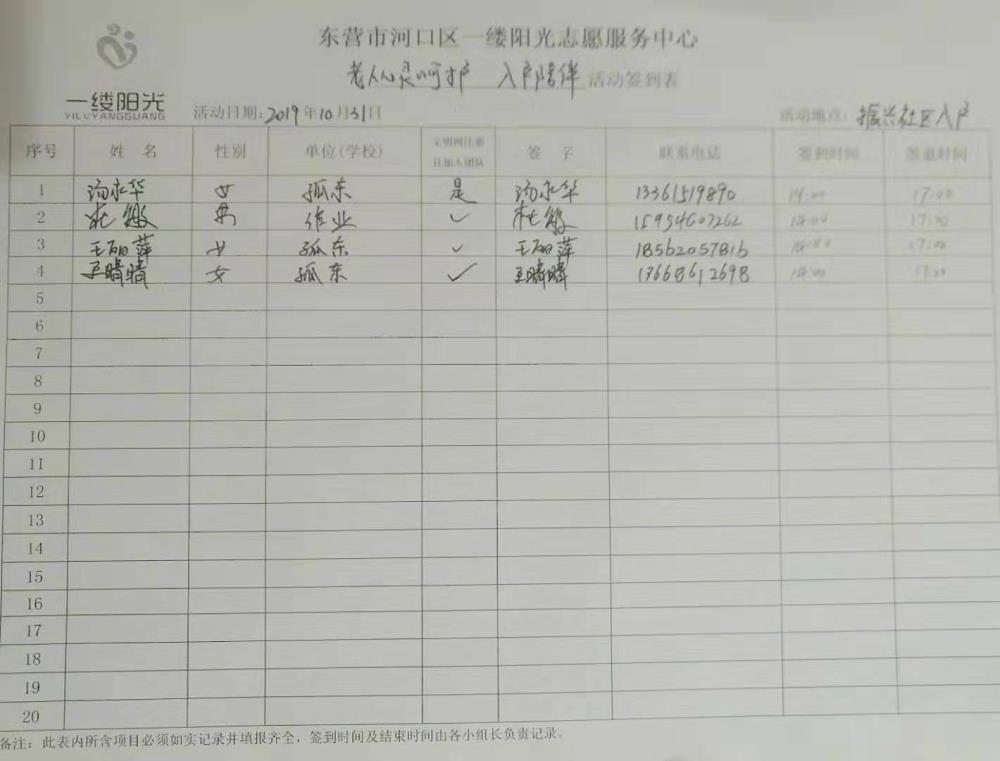 东营市河口区一缕阳光志愿服务中心
老人心灵呵护 入户陪伴 活动签到表
一缕阳光
YILVYANGGUANG
活动日期：2019年10月31日 活动地点：振兴社区入户
序号 姓 名 性别 单位(学校) 文明网注册且加入团队 签 字 联系电话 签到时间 签退时间
1 汤永华 女 孤东 是 汤永华 13361519890 14:00 17:00
2 杜敏 男 作业 ✓ 杜敏 15954607262 14:00 17:00
3 王丽萍 女 孤东 ✓ 王丽萍 18562057816 14:00 17:00
4 王晴晴 女 孤东 ✓ 王晴晴 13668612698 14:00 17:00
5
6
7
8
9
10
11
12
13
14
15
16
17
18
19
20
备注：此表内所含项目必须如实记录并填报齐全，签到时间及结束时间由各小组长负责记录。